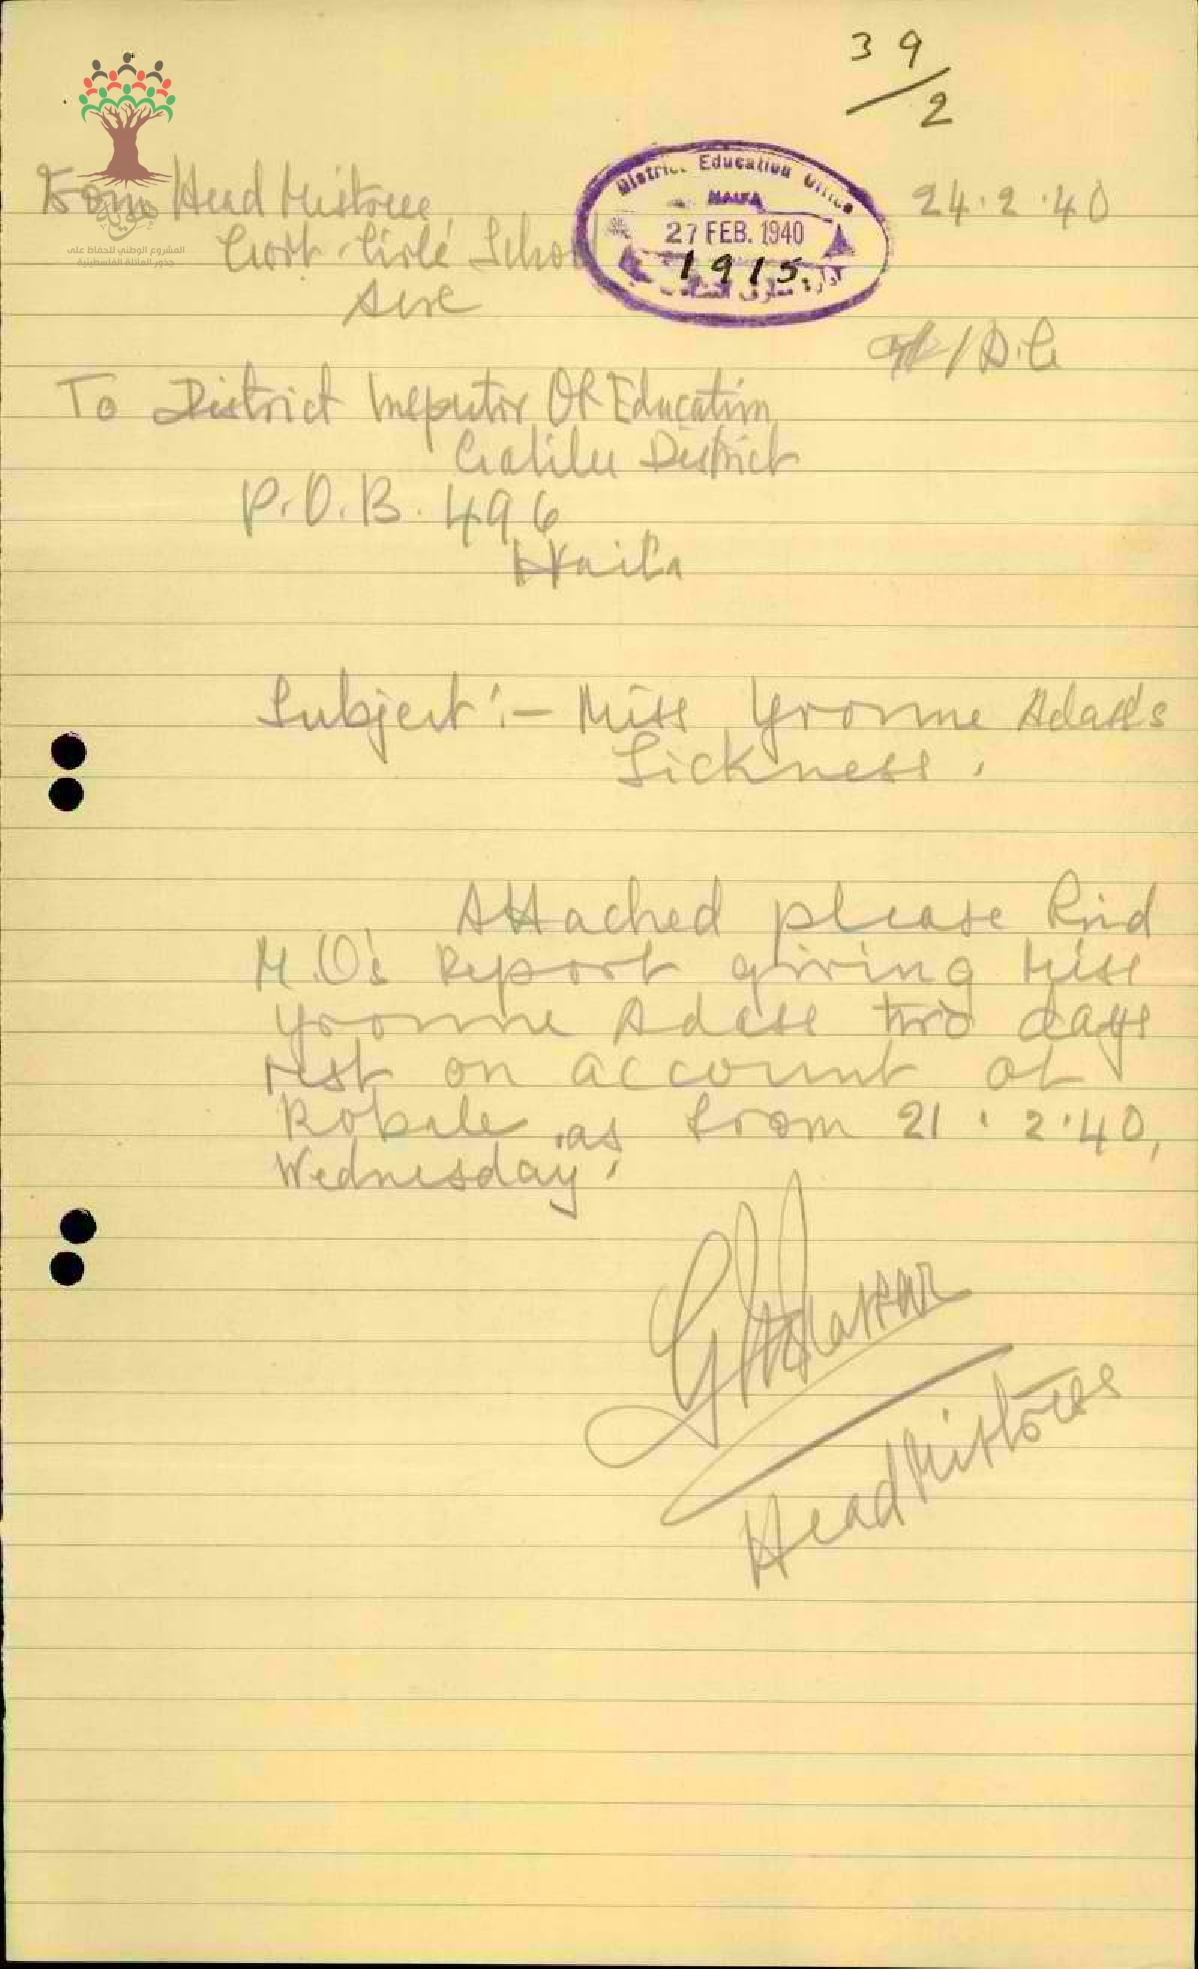 39/2
From Head Mistress
Govt. Girls' School
Acre
24.2.40
District Education Office
HAIFA
27 FEB. 1940
1915
ادارة معارف
المشروع الوطني للحفاظ على
جذور العائلة الفلسطينية
To District Inspector Of Education
Galilee District
P.O.B. 496
Haifa
Subject:- Miss Yvonne Adass's
Sickness.
Attached please find
M.O's Report giving Miss
Yvonne Adass two days
rest on account of
as from 21.2.40,
Wednesday.
Head Mistress